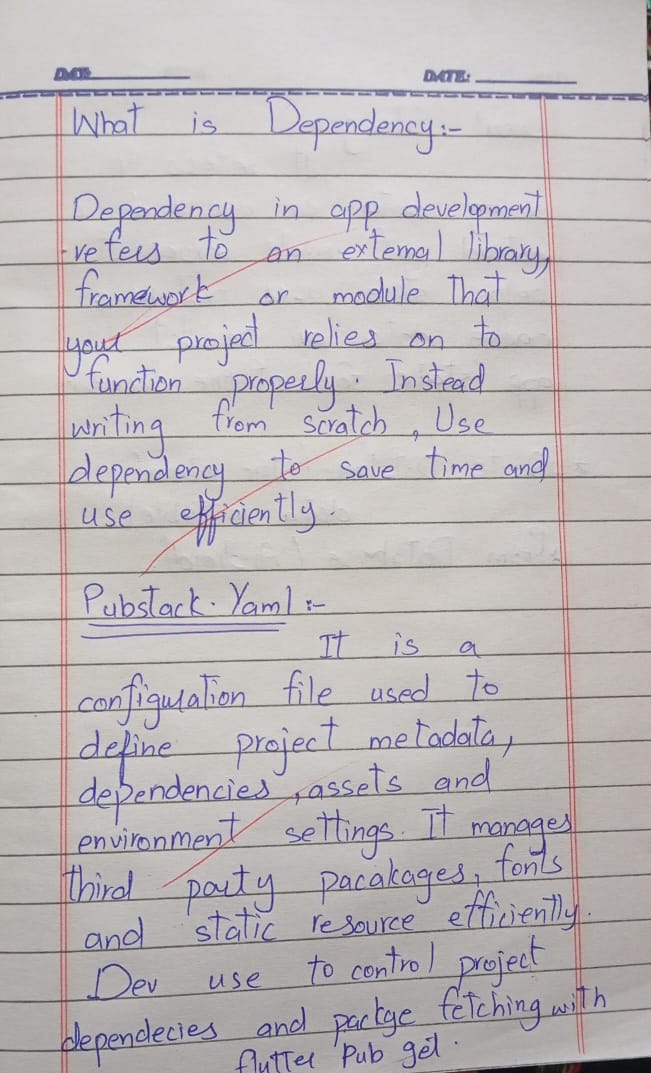 DATE:
What is Dependency:-
Dependency in app development
refers to an external library,
framework or module that
your project relies on to
function properly. Instead
writing from scratch, Use
dependency to save time and
use efficiently.
Pubstack.Yaml:-
It is a
configuration file used to
define project metadata,
dependencies, assets and
environment settings. It manages
third party pacakages, fonts
and static resource efficiently.
Dev use to control project
dependecies and packge fetching with
flutter Pub get.